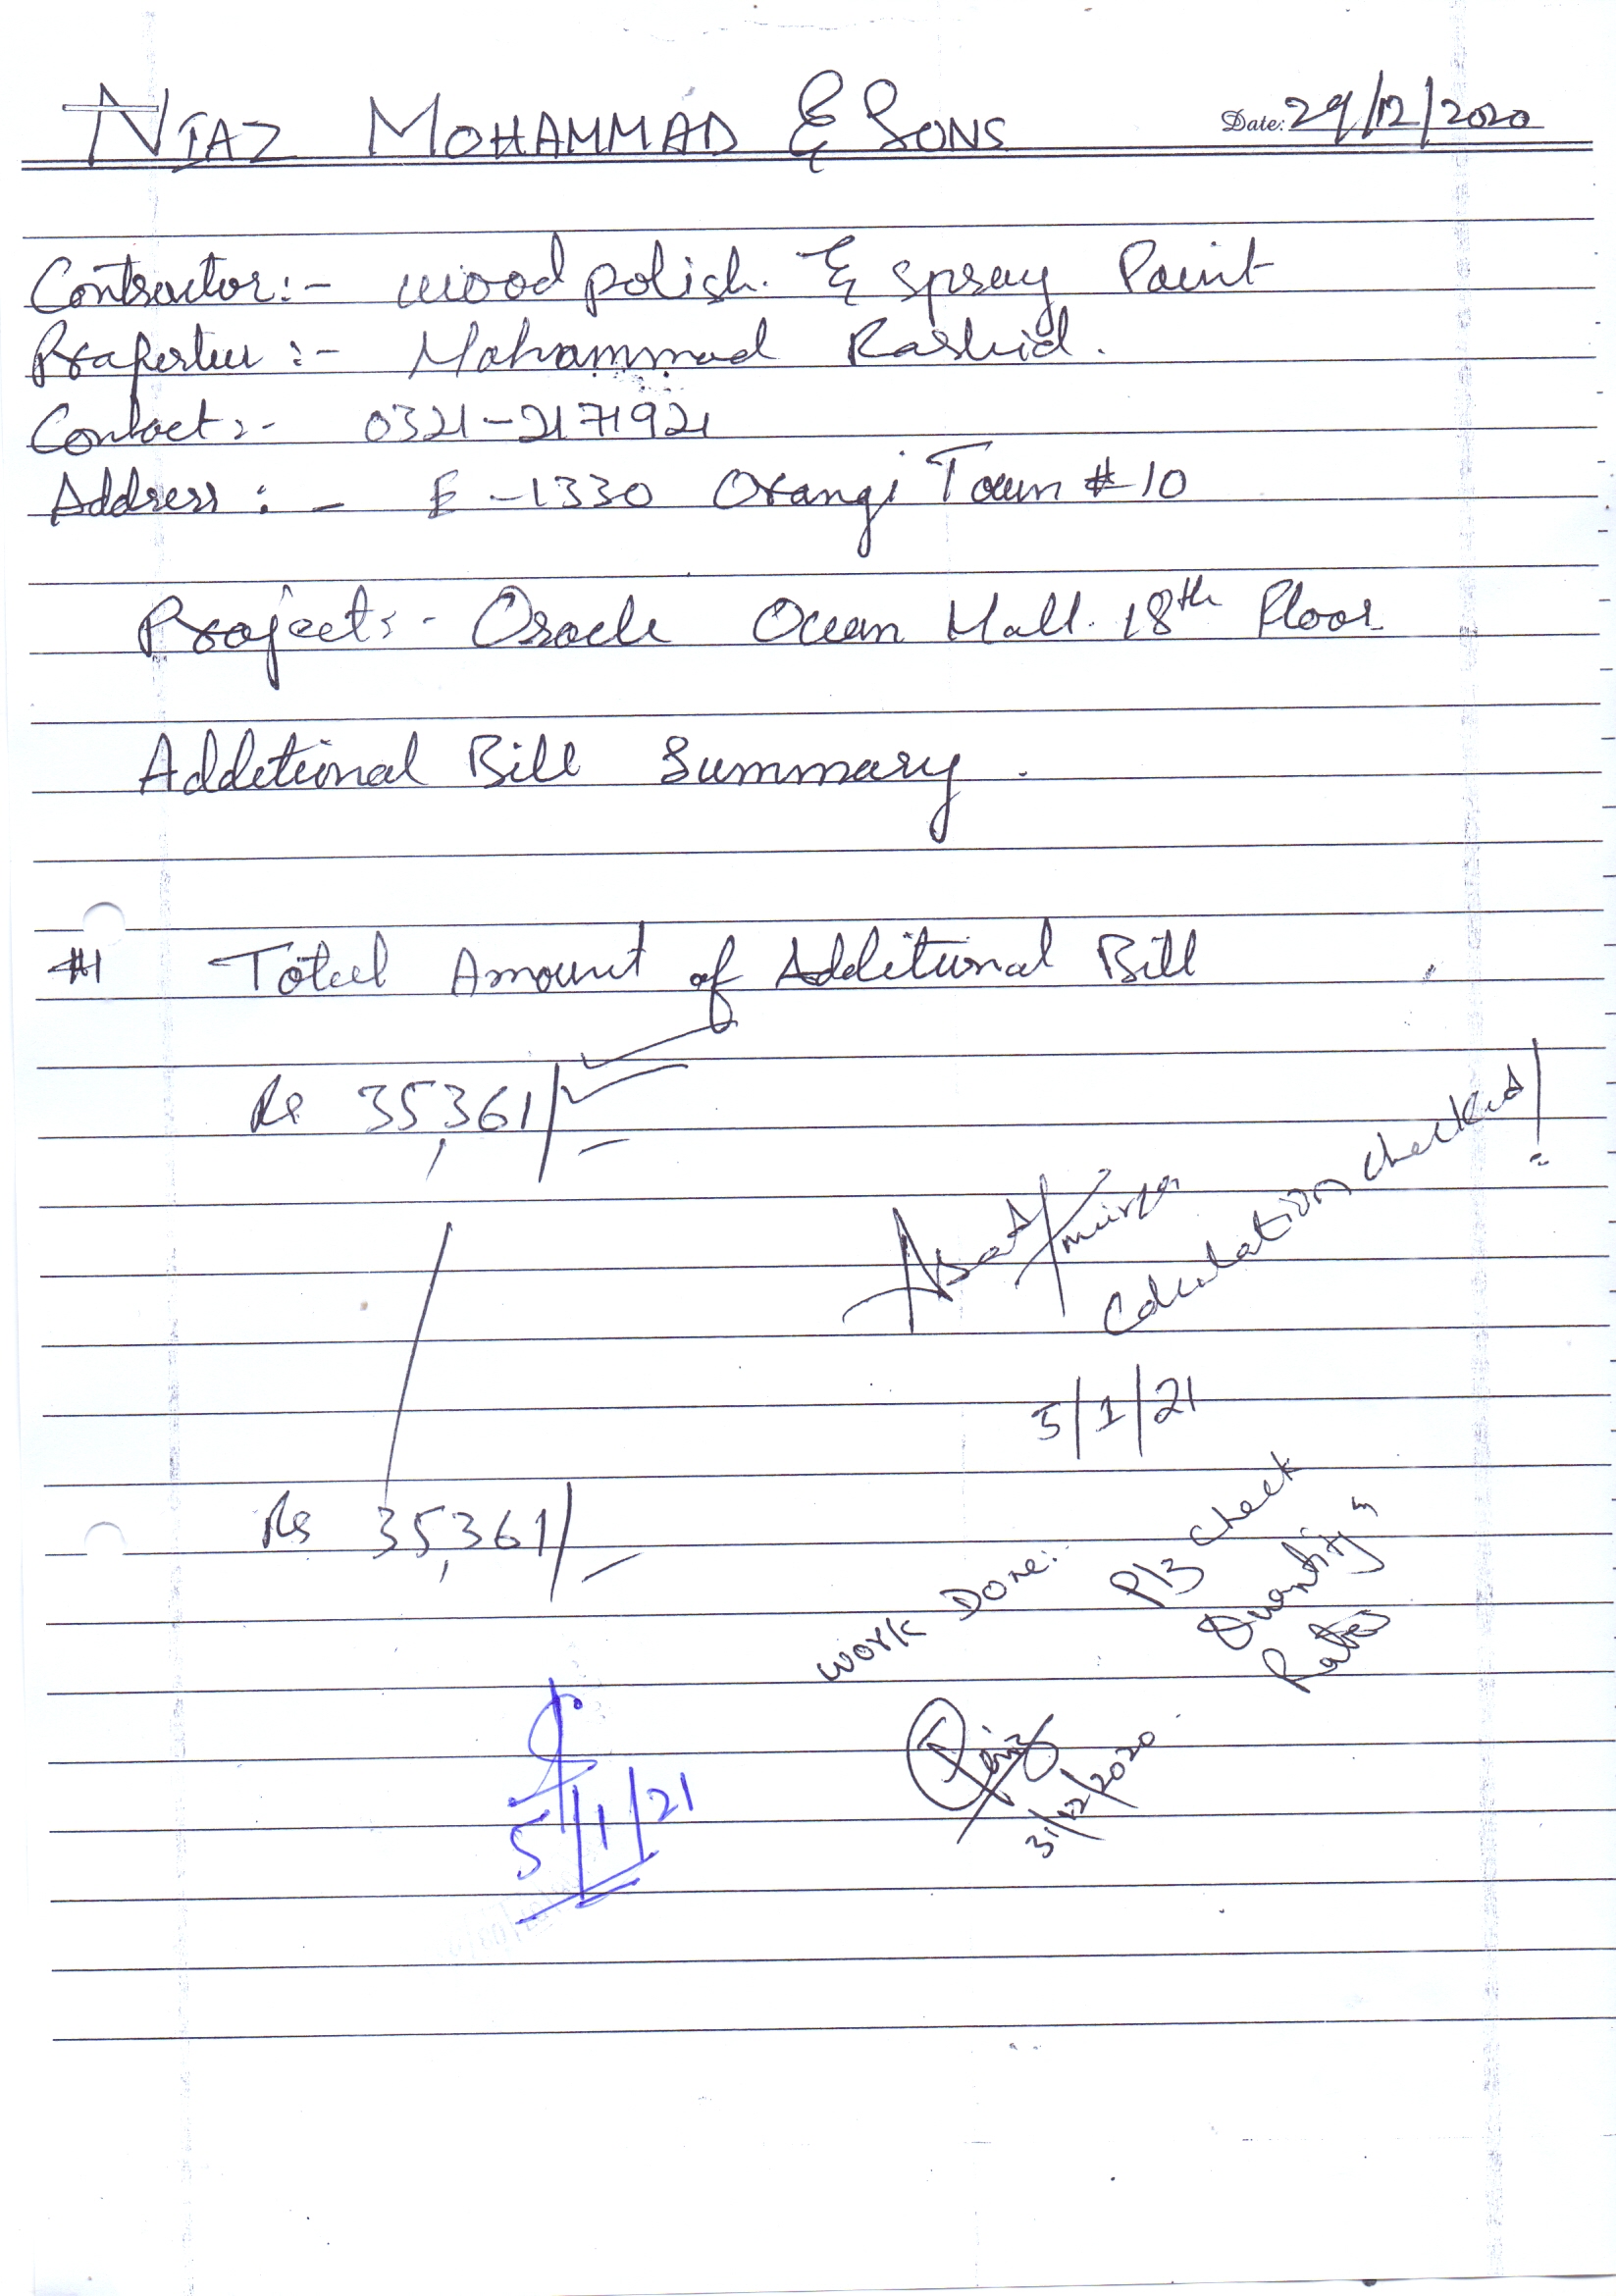 NIAZ MOHAMMAD & SONS
Date: 29/12/2020
Contractor:- wood polish. & spray Paint
Properter :- Mohammad Rashid.
Contact:- 0321-2171921
Address :- E-1330 Orangi Town # 10
Project:- Oracle Ocean Mall. 18th Floor
Additional Bill Summary.
#1 Total Amount of Additional Bill
Rs 35,361/-
Asad mirza
Calculation checked
5/1/21
Rs 35,361/-
Work Done:
Plz check
Quantity
Rates
31/12/2020
5/1/21